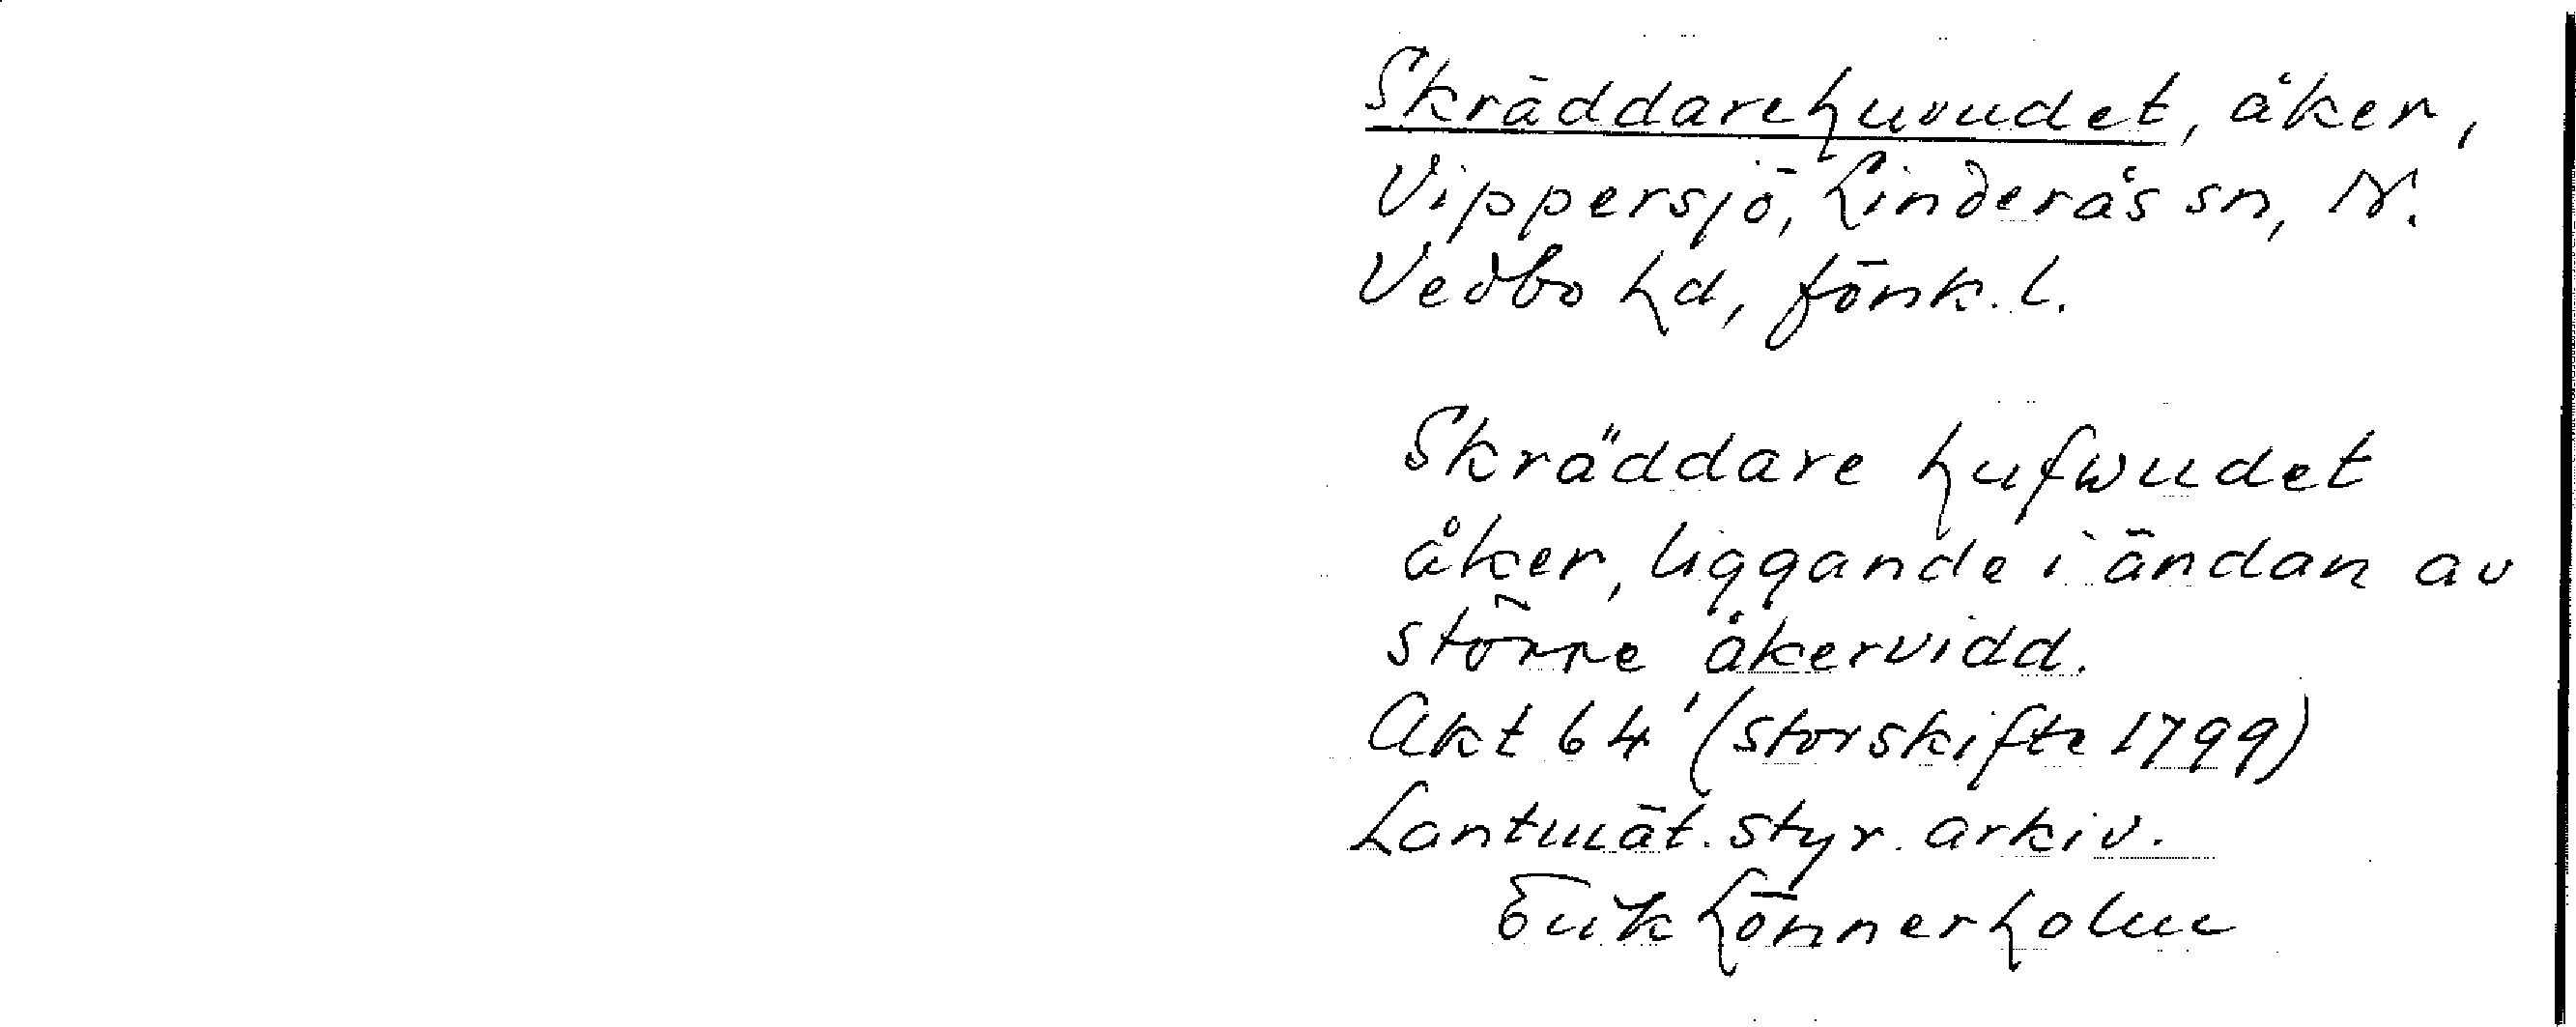 Skräddarehuvudet, åker,
Vippersjö, Linderås sn, N.
Vedbo hd, Jönk. l.
Skräddare hufwudet
åker, liggande i ändan av
större åkervidd.
Akt 64 (storskifte 1799)
Lantmät. styr. arkiv.
Erik Lönnerholm